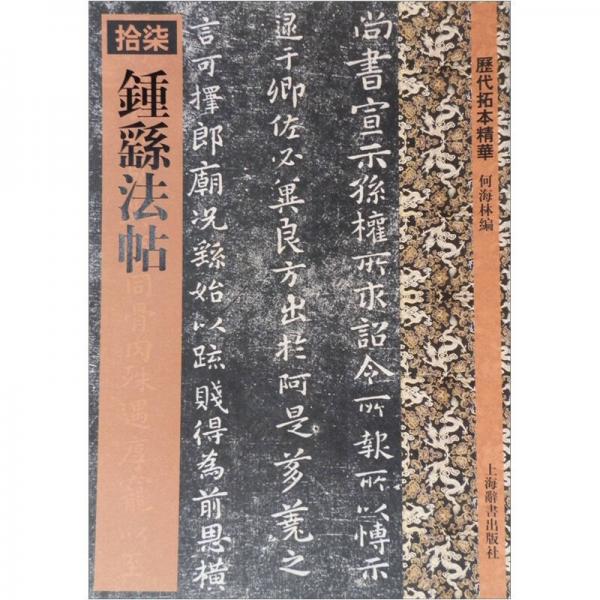 拾柒
鍾繇法帖
同骨肉殊遇厚寵以至
尚書宣示孫權所求詔令所報所以博示
逮于卿佐必冀良方出於阿是芻蕘之
言可擇郎廟況繇始以疏賤得為前恩橫
歷代拓本精華
何海林编
上海辭書出版社